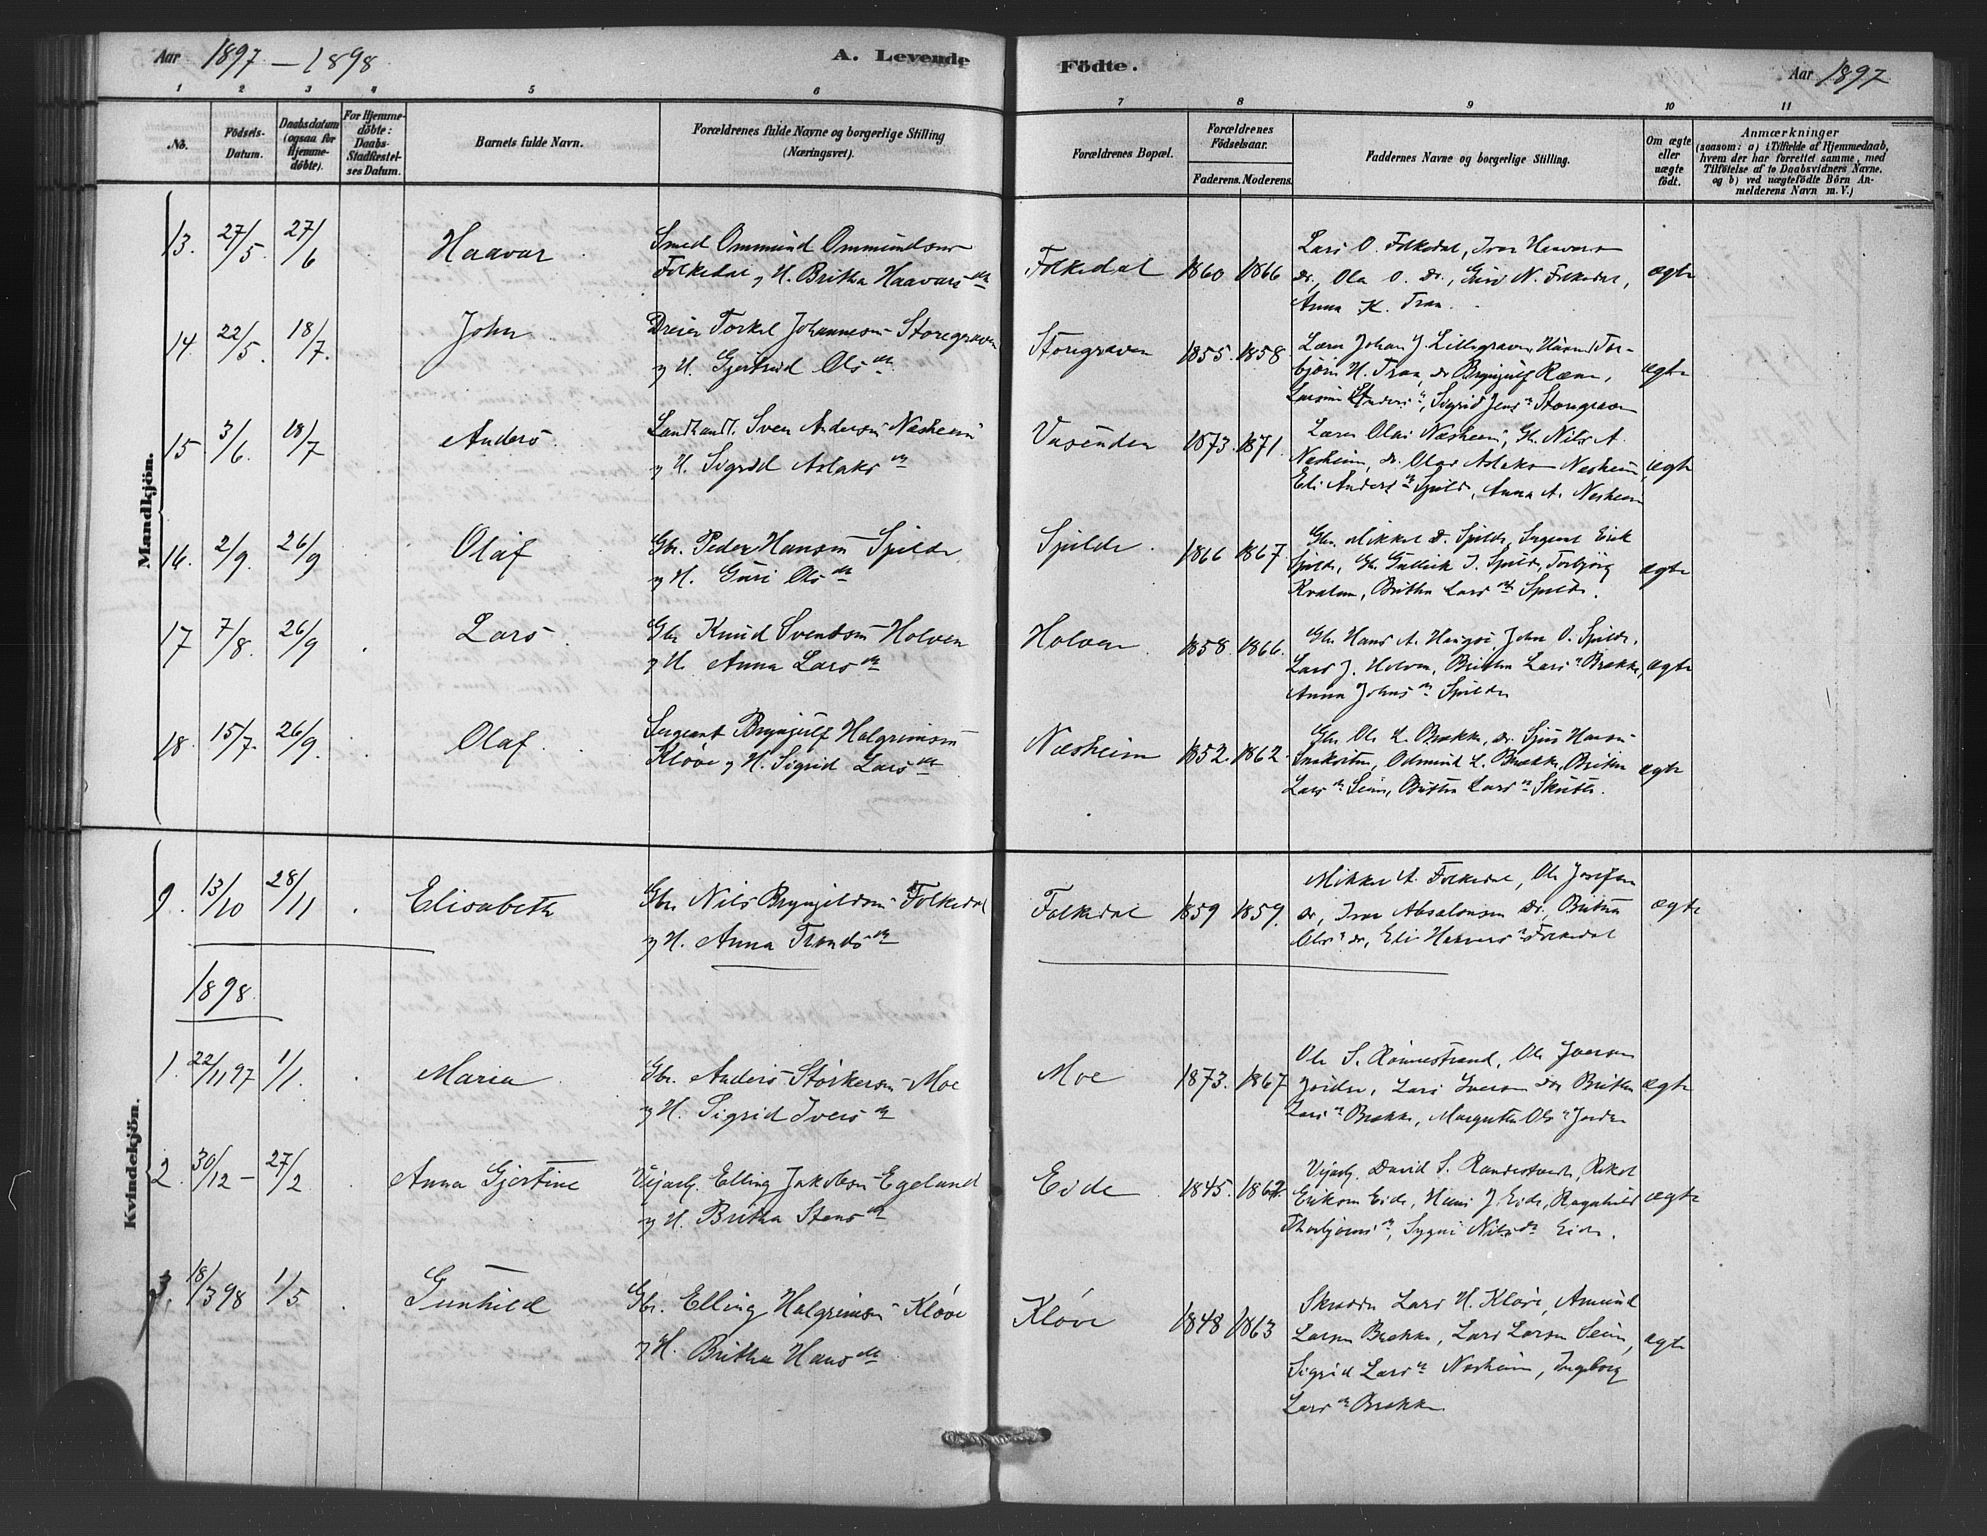 Aar 1897 – 1898. A. Levende Födte. Aar 1897
1 2 3 4 5 6 7 8 9 10 11
No.
Födsels-Datum.
Daabsdatum (ogsaa for Hjemmedöbte).
For Hjemmedöbte: Daabs-Stadfæstelses Datum.
Barnets fulde Navn.
Forældrenes fulde Navne og borgerlige Stilling (Næringsvei).
Forældrenes Bopæl.
Forældrenes Födselsaar.
Faderens. Moderens.
Faddernes Navne og borgerlige Stilling.
Om ægte eller uægte födt.
Anmærkninger
(saasom: a) i Tilfælde af Hjemmedaab, hvem der har forrettet samme, med Tilföielse af to Daabsvidners Navne. og b) ved uægtefödte Börn Anmelderens Navn m. V.)
Mandkjön.
13. 27/5. 27/6 Haavar Smed Ommund Ommundsen
Folkedal og H. Britha Haavarsdr
Folkedal 1860 1866
Lars O. Folkedal, Ivar Haavars
do, Ola O. do, N. Folkedal,
Anna K. Tran.
ægte
14. 22/5. 18/7. John Dreier Torkel Johannesen Storegraven
og H. Gjertrud Olsdr
Storegraven 1855. 1858.
Lærer Johan J. Lillegraven, Husm. Tor-
björn H. Tran, do Brynjulf Ræne,
Sigrid Jensdr Storegraven
ægte
15 3/6. 18/7 Anders. Landhandl. Sven Andersen Næsheim
og H. Sigrid Aslaksdr
Vasenden 1873. 1871.
Lærer Olai Næsheim, Gbr. Nils A.
Nesheim, do. Olav Aslaksen Nesheim,
Eli Andersdr Spilde, Anna A. Nesheim
ægte
16. 2/9. 26/9 Olaf Gbr. Peder Hansen Spilde
og H. Guri Olsdr
Spilde. 1866 1867
Gbr. Mikkel D. Spilde, Sergeant Eirik
Spilde, Gbr. Gullick J. Spilde, Torbjörg
Kvalem, Britha Larsdr Spilde.
ægte
17 7/8. 26/9 Lars. Gbr Knud Svendsen Holven
og H Anna Larsdr
Holven. 1858. 1866.
Gbr. Hans A. Haugse, John O. Spilde,
Lars J. Holven, Britha Larsdr Brække,
Anna Johnsdr Spilde
ægte
18. 15/7. 26/9. Olaf. Sergeant Brynjulf Halgrimsen
Kløve og H. Sigrid Larsdr
Næsheim 1852. 1862.
Gbr Ole L. Brække, do. Sjur Hansen
Odmund L. Brække, Britha
Larsdr Seim, Britha Larsdr Skutle.
ægte
Kvindekjön.
9. 13/10 28/11 Elisabeth Gbr. Nils Brynjildsen Folkedal
og H. Anna Trondsdr
Folkedal 1859 1859.
Mikkel A. Folkedal, Ole Josefsen
do, Ivar Absalonsen do, Britha
Olsdr do, Eli Haavarsdr Folkedal
ægte
1898.
1. 22/11 97 1/1. Maria Gbr. Anders Størkersen Moe
og H. Sigrid Iversdr
Moe 1873. 1867
Ole S. Rönnestrand, Ole Iversen
Jordre, Lars Iversen do, Britha
Larsdr Brække, Margretha Olsdr Jordre
ægte
2. 30/12 – 27/2. Anna Gjertine Veiarb. Elling Jakobsen Egeland
og H. Britha Stensdr
Eide 1845. 1862.
Veiarb. David S. Randestveit,
Eriksen Eide, Hans J. Eide, Ragnhild
Thorbjörnsdr, Sygni Nilsdr Eide.
ægte
3. 18/3 98 1/5 Gunhild Gbr. Elling Halgrimsen Kløve
og H. Britha Hansdr
Kløve 1848 1863
Skrædder Lars H. Kløve, Amund
Larsen Brække, Lars Larsen Seim,
Sigrid Larsdr Nesheim, Ingeborg
Larsdr Brække
ægte